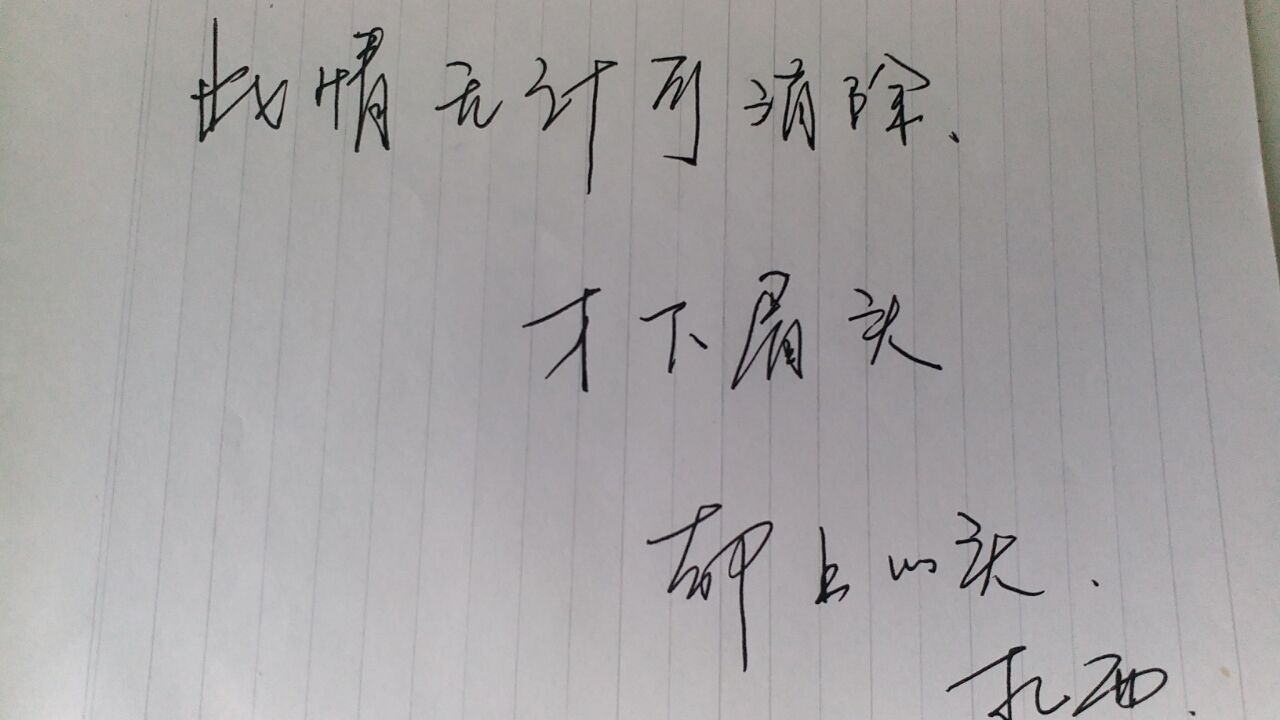 此情无计可消除、
才下眉头
却上心头.
扎西.